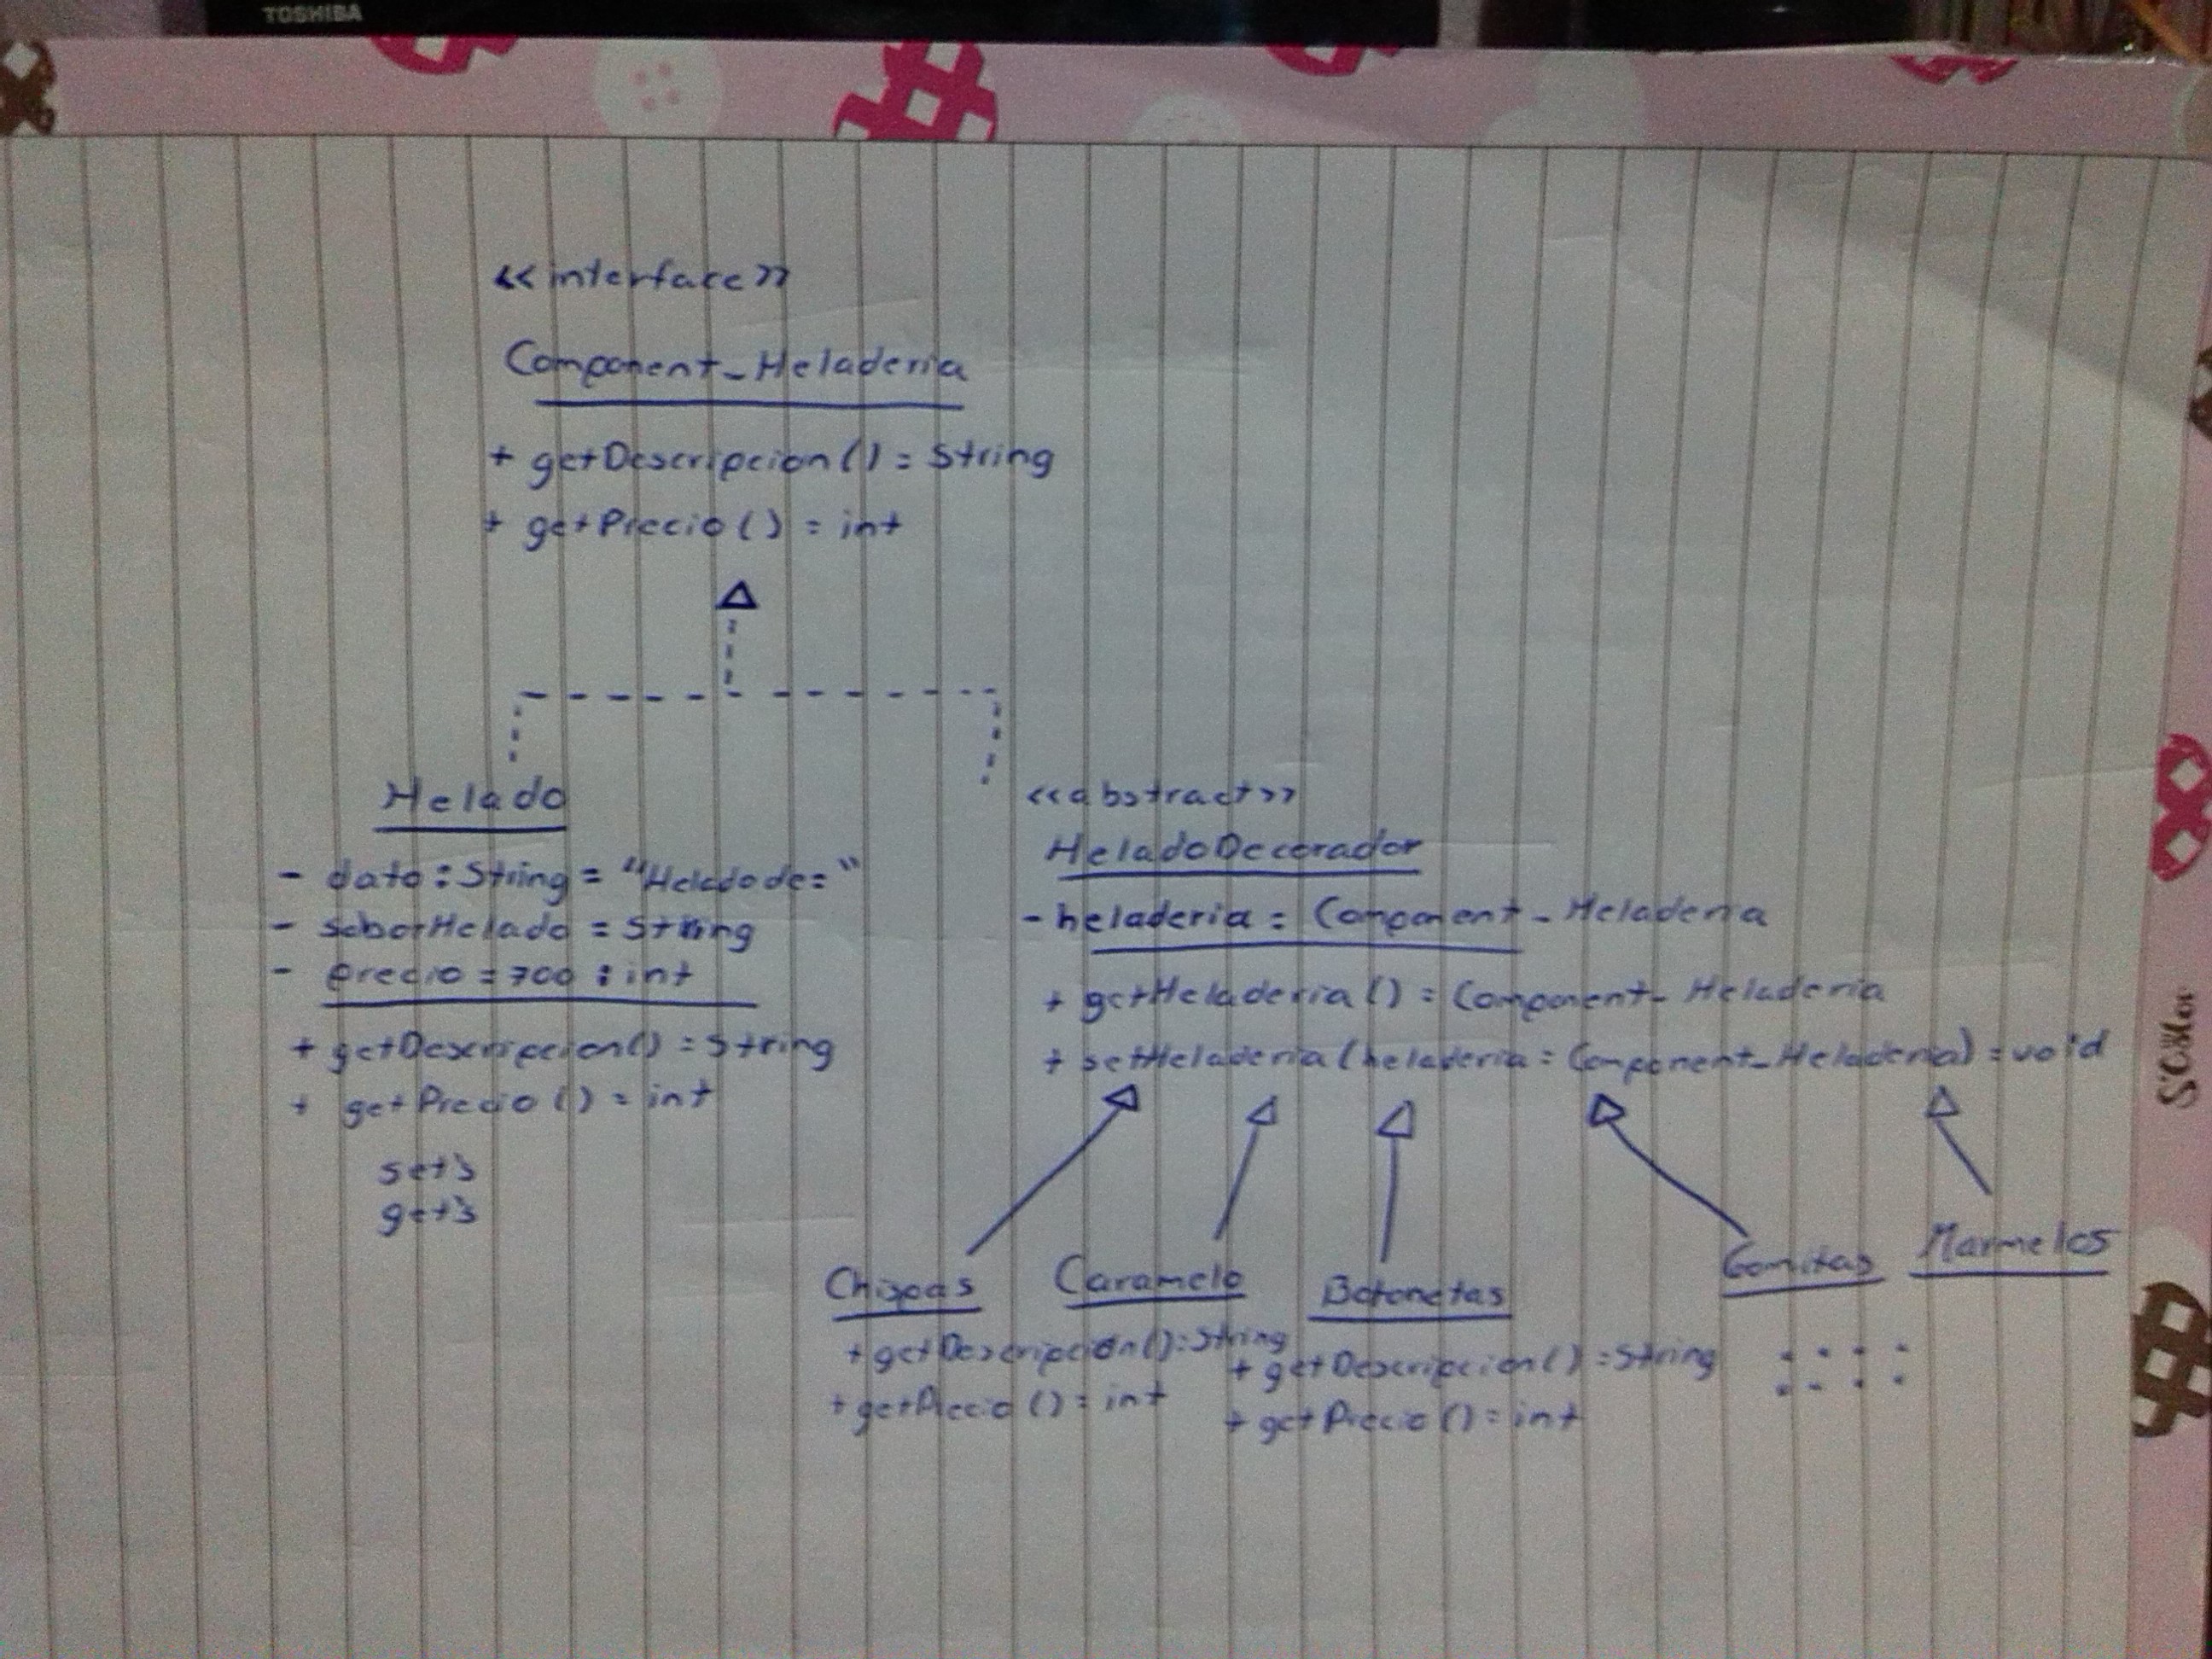 TOSHIBA
<<interface>>
Component_Heladeria
+ getDescripcion() = String
+ getPrecio() = int
Helado
- dato : String = "Helado de: "
- saborHelado = String
- precio = 700 : int
+ getDescripcion() = String
+ getPrecio() = int
set's
get's
<<abstract>>
HeladoDecorador
- heladeria = Component_Heladeria
+ getHeladeria() = Component_Heladeria
+ setHeladeria(heladeria = Component_Heladeria) = void
Chispas
Caramelo
Botonetas
Gomitas
Marmelos
+ getDescripcion() : String
+ getPrecio() = int
+ getDescripcion() = String
+ getPrecio() = int